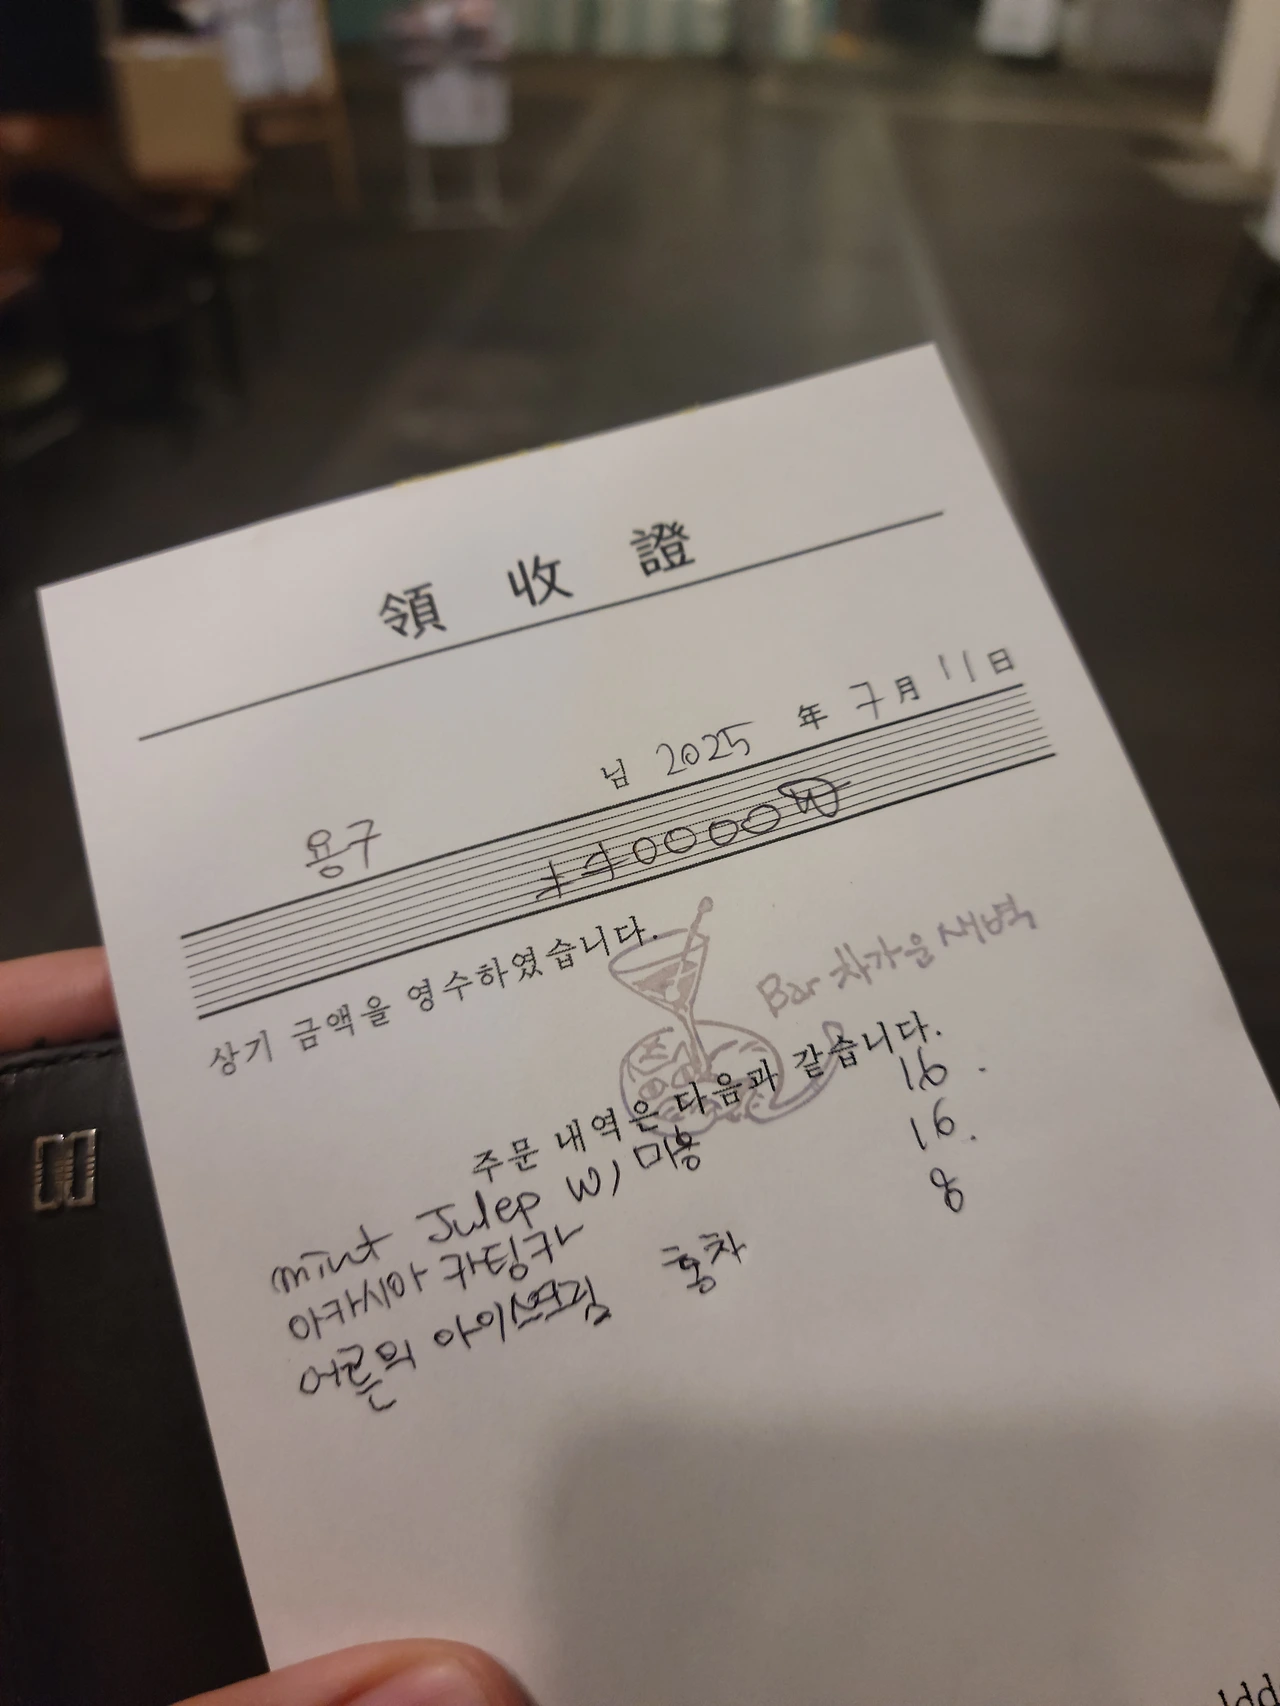 領 收 證
용구 님 2025 年 7月 11日
40000₩
상기 금액을 영수하였습니다.
Bar 차가운 새벽
주문 내역은 다음과 같습니다.
mint Julep W/ 미용 16.
아카시아 카팅카 16.
어른의 아이스크림 홍차 8